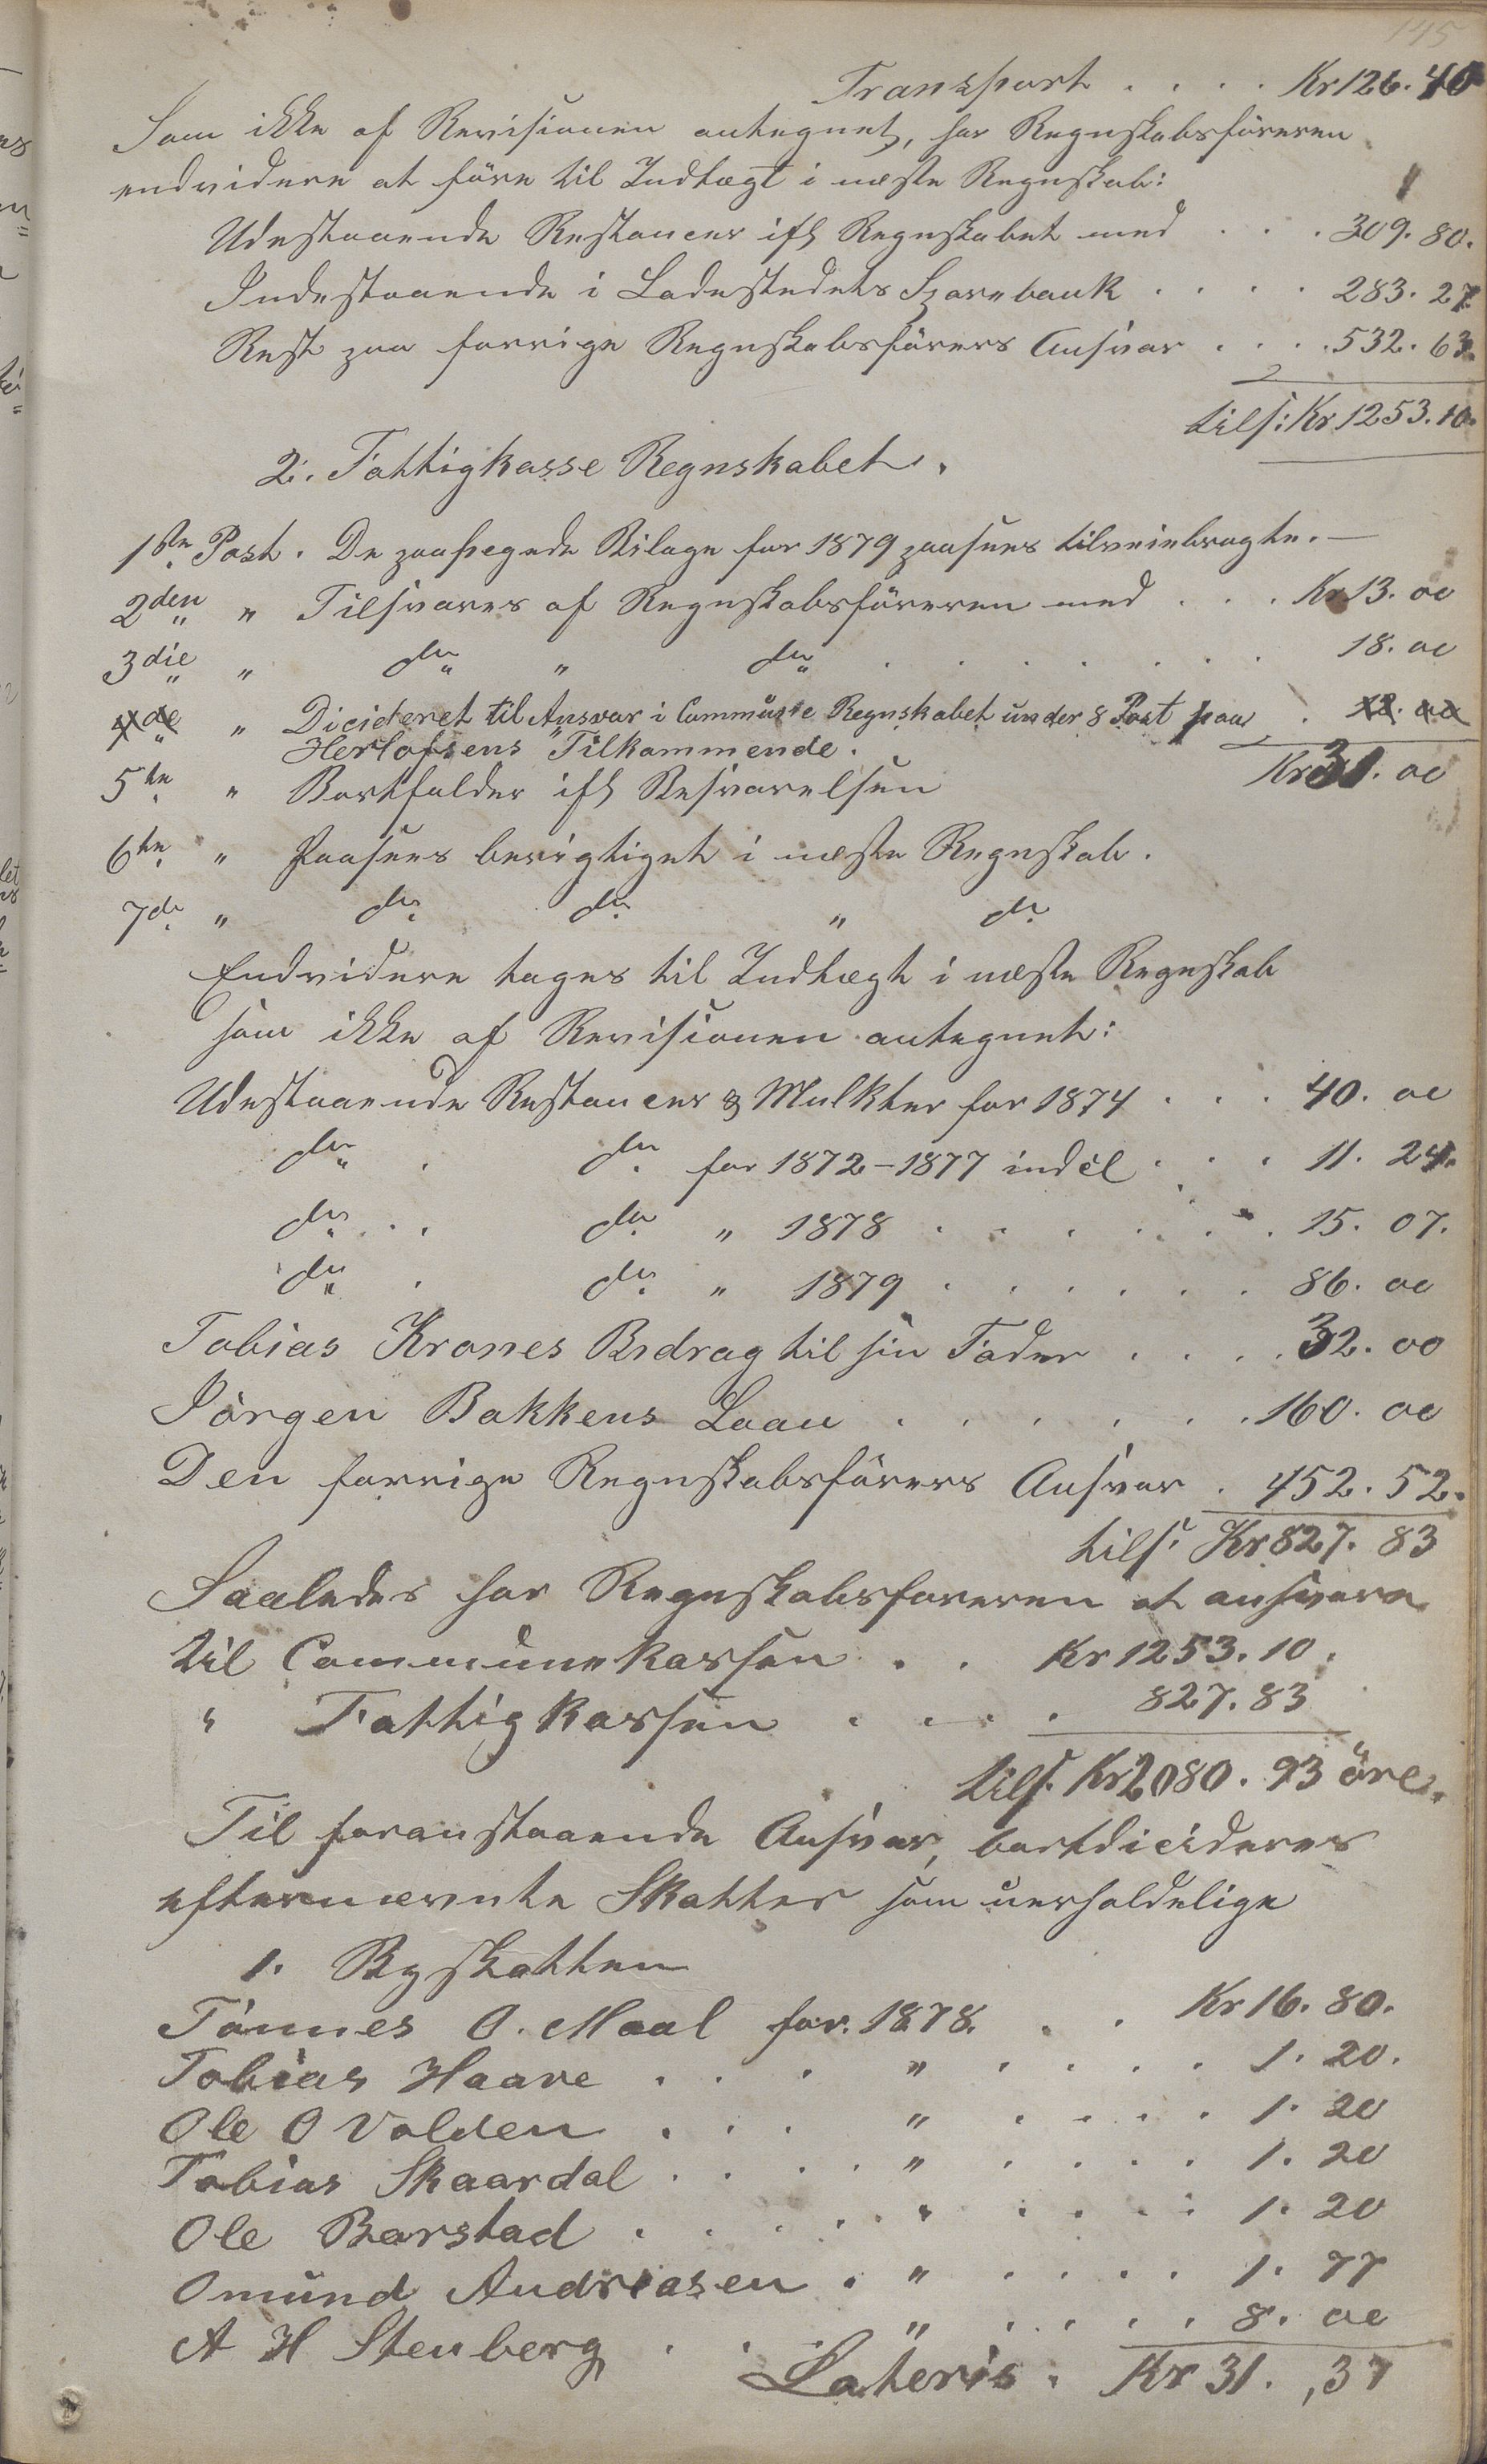 145
Transport . . . . Kr 126. 40
Som ikke af Revisionen antegnet, har Regnskabsföreren
endvidere at före til Indtægt i næste Regnskab:
Udestaaende Restancer ifl Regnskabet med . . . 309. 80.
Indestaaende i Ladestedets Sparebank . . . . 283. 27.
Rest paa forrige Regnskabsförers Ansvar . . . . 532. 63.
tils: Kr 1253. 10.
2. Fattigkasse Regnskabet.
1ste Post. De paapegede Bilage for 1879 paasees tilveiebragte. —
2den " Tilsvares af Regnskabsföreren med . . . Kr 13. oo
3die " do " do . . . . . . . 18. oo
4de " Dicideret til Ansvar i Commune Regnskabet under 8 Post paa . 12. oo
Herlofsens Tilkommende.
Kr 31. oo
5te " Bortfalder ifl Besvarelsen
6te " Paasees berigtiget i næste Regnskab.
7de " do do " do
Endvidere tages til Indtægt i næste Regnskab
som ikke af Revisionen antegnet:
Udestaaende Restancer & Mulkter for 1874 . . . 40. oo
do . do for 1872-1877 incl . . . 11. 24.
do . . do " 1878 . . . . . . 15. 07.
do . do " 1879 . . . . . . 86. oo
Tobias Krones Bidrag til sin Fader . . . . 32. oo
Jörgen Bakkens Laan . . . . . . 160. oo
Den forrige Regnskabsförers Ansvar . 452. 52.
tils. Kr 827. 83
Saaledes har Regnskabsföreren at ansvare
til Communekassen . . Kr 1253. 10.
" Fattigkassen . . . . 827. 83
tils. Kr 2080. 93 öre.
Til foranstaaende Ansvar, bortdicideres
efternævnte Skatter som uerholdelige
1. Byskatten
Tönnes O. Maal for 1878. . . Kr 16. 80.
Tobias Haave . . . " . . . . 1. 20.
Ole O Volden . . . " . . . . 1. 20
Tobias Skaardal . . . . " . . . . 1. 20
Ole Barstad . . . . . " . . . . 1. 20
Omund Andreasen . " . . . . 1. 77
A H Stenberg . . . " . . . . 8. oo
Lateris . Kr 31. ,37